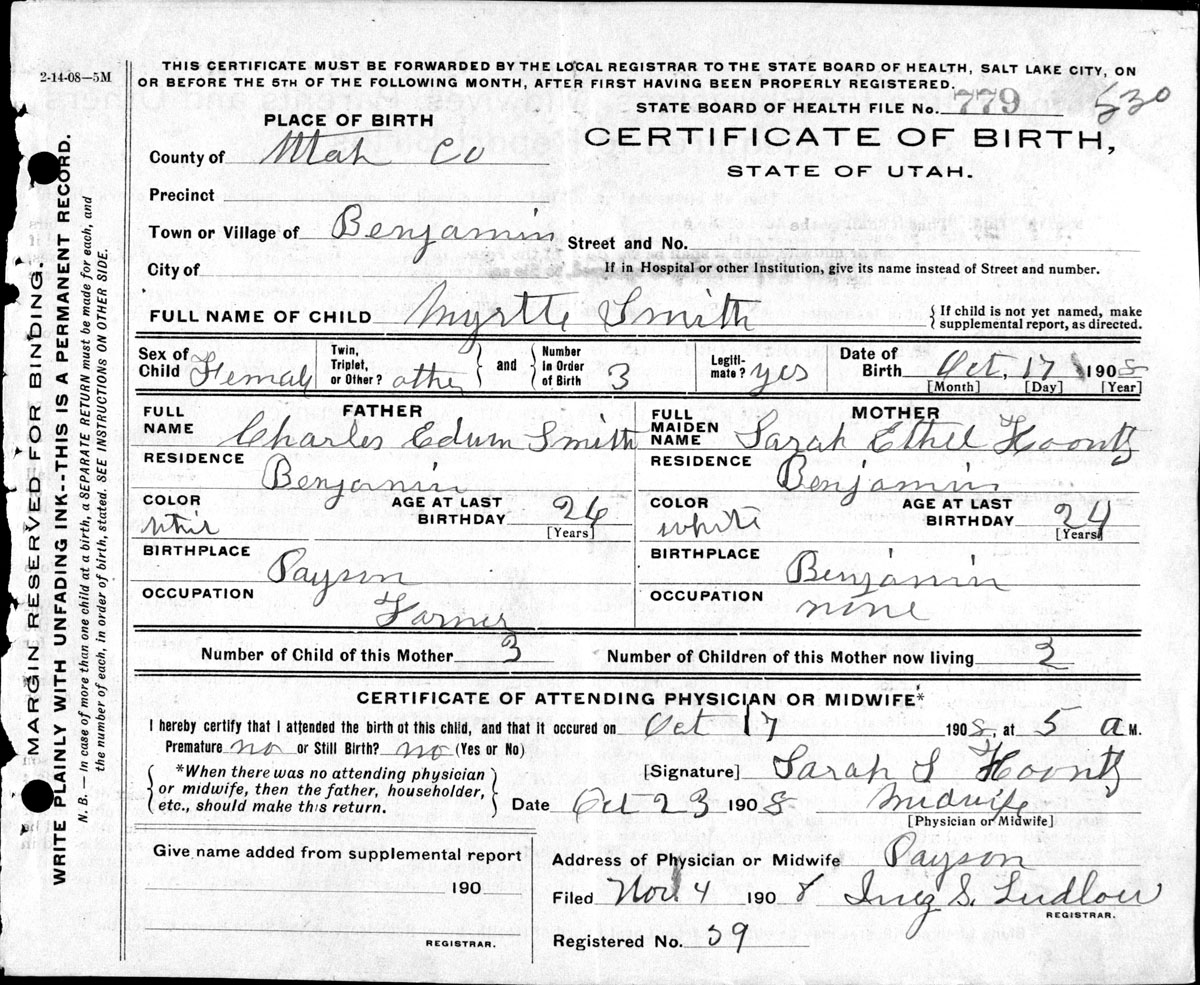 2-14-08—5M
THIS CERTIFICATE MUST BE FORWARDED BY THE LOCAL REGISTRAR TO THE STATE BOARD OF HEALTH, SALT LAKE CITY, ON
OR BEFORE THE 5TH OF THE FOLLOWING MONTH, AFTER FIRST HAVING BEEN PROPERLY REGISTERED.
STATE BOARD OF HEALTH FILE No. 779 530
PLACE OF BIRTH
CERTIFICATE OF BIRTH,
STATE OF UTAH.
County of Utah Co
Precinct
Town or Village of Benjamin Street and No.
City of If in Hospital or other Institution, give its name instead of Street and number.
FULL NAME OF CHILD Myrtle Smith { If child is not yet named, make
supplemental report, as directed.
Sex of Child Female Twin, Triplet, or Other? other } and { Number in Order of Birth 3 Legiti-mate? yes Date of Birth Oct, 17 1908
[Month] [Day] [Year]
FATHER
FULL NAME Charles Edwin Smith
RESIDENCE Benjamin
COLOR AGE AT LAST BIRTHDAY 24 [Years]
BIRTHPLACE Payson
OCCUPATION Farmer
MOTHER
FULL MAIDEN NAME Sarah Ethel Koontz
RESIDENCE Benjamin
COLOR white AGE AT LAST BIRTHDAY 24 [Years]
BIRTHPLACE Benjamin
OCCUPATION none
Number of Child of this Mother 3 Number of Children of this Mother now living 3
CERTIFICATE OF ATTENDING PHYSICIAN OR MIDWIFE*
I hereby certify that I attended the birth of this child, and that it occured on Oct 17 1908, at 5 a M.
Premature no or Still Birth? no (Yes or No)
{ *When there was no attending physician
or midwife, then the father, householder,
etc., should make this return. }
[Signature] Sarah S Koontz
Date Oct 23 1908 Midwife
[Physician or Midwife]
Give name added from supplemental report
190
REGISTRAR.
Address of Physician or Midwife Payson
Filed Nov 4 1908 Inez S. Ludlow
REGISTRAR.
Registered No. 39
MARGIN RESERVED FOR BINDING.
WRITE PLAINLY WITH UNFADING INK--THIS IS A PERMANENT RECORD.
N. B.—In case of more than one child at a birth, a SEPARATE RETURN must be made for each, and
the number of each, in order of birth, stated. SEE INSTRUCTIONS ON OTHER SIDE.